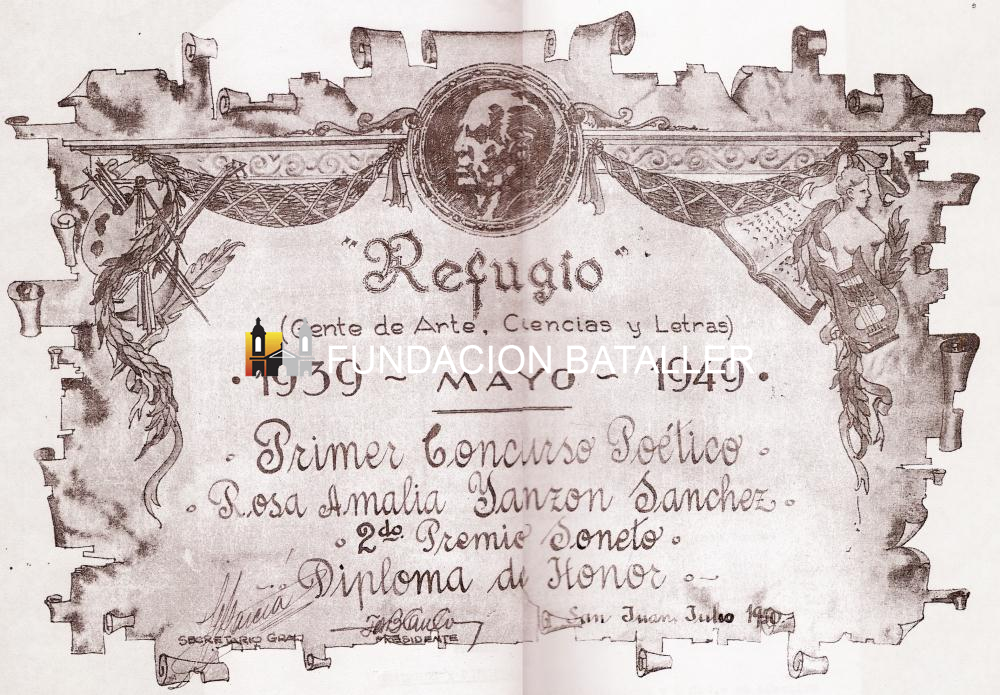 "Refugio"
(Gente de Arte, Ciencias y Letras)
FUNDACION BATALLER
· 1939 ~ MAYO ~ 1949 ·
· Primer Concurso Poético ·
· Rosa Amalia Yanzon Sanchez ·
· 2do. Premio Soneto ·
Diploma de Honor
San Juan, Julio
SECRETARIO GRAL
PRESIDENTE